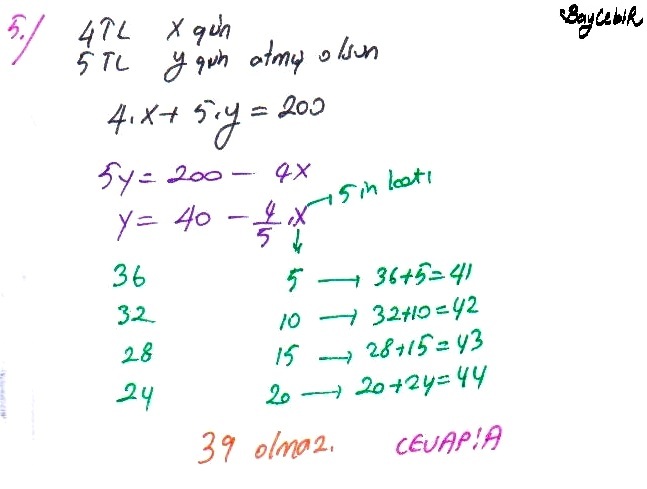 BayCebiR
5./ 4TL x gün
5TL y gün atmış olsun
4.x + 5.y = 200
5y = 200 - 4x
y = 40 - 4/5 .x → 5 in katı
36 5 → 36+5=41
32 10 → 32+10=42
28 15 → 28+15=43
24 20 → 20+24=44
39 olmaz. CEVAP:A